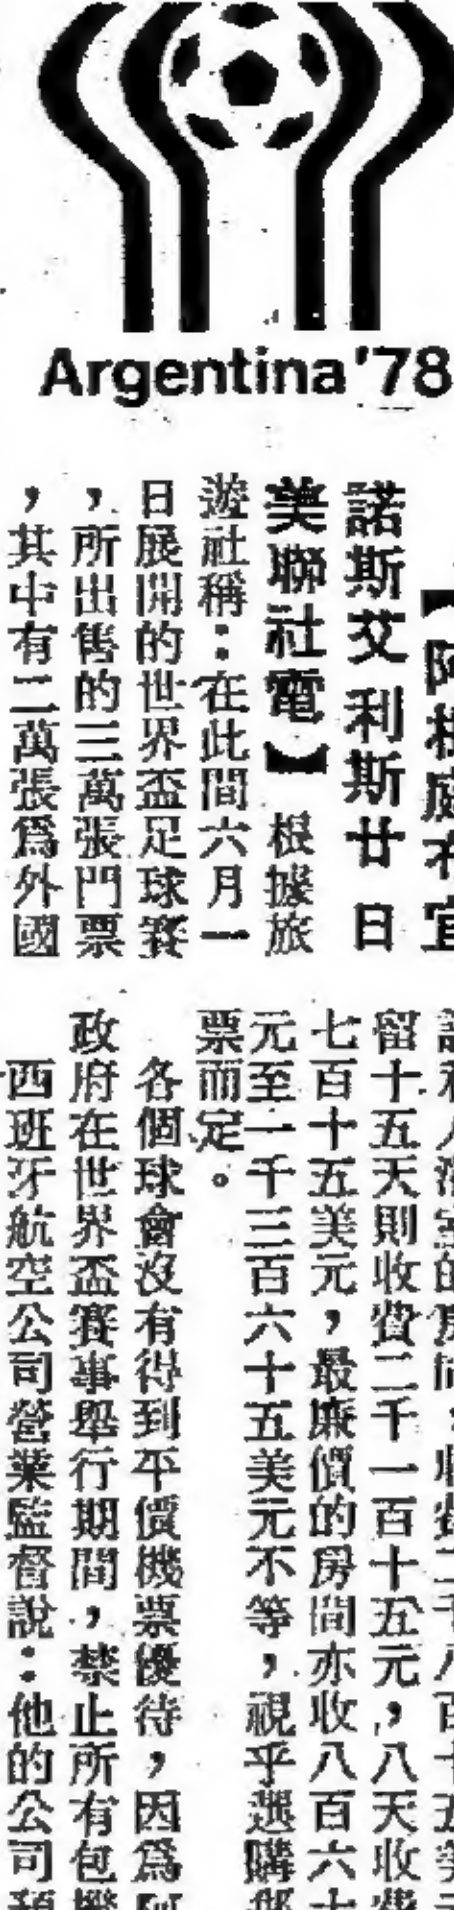 Argentina'78
【阿根庭布宜
諾斯艾利斯廿日
美聯社電】根據旅
遊社稱：在此間六月一
日展開的世界盃足球賽
，所出售的三萬張門票
，其中有二萬張爲外國
留十五天則收費二千一百十五元，八天收費
七百十五美元，最廉價的房間亦收八百六十
元至一千三百六十五美元不等，視乎選購
票而定。
各個球會沒有得到平價機票優待，因爲阿
政府在世界盃賽事舉行期間，禁止所有包機
西班牙航空公司營業監督說：他的公司預